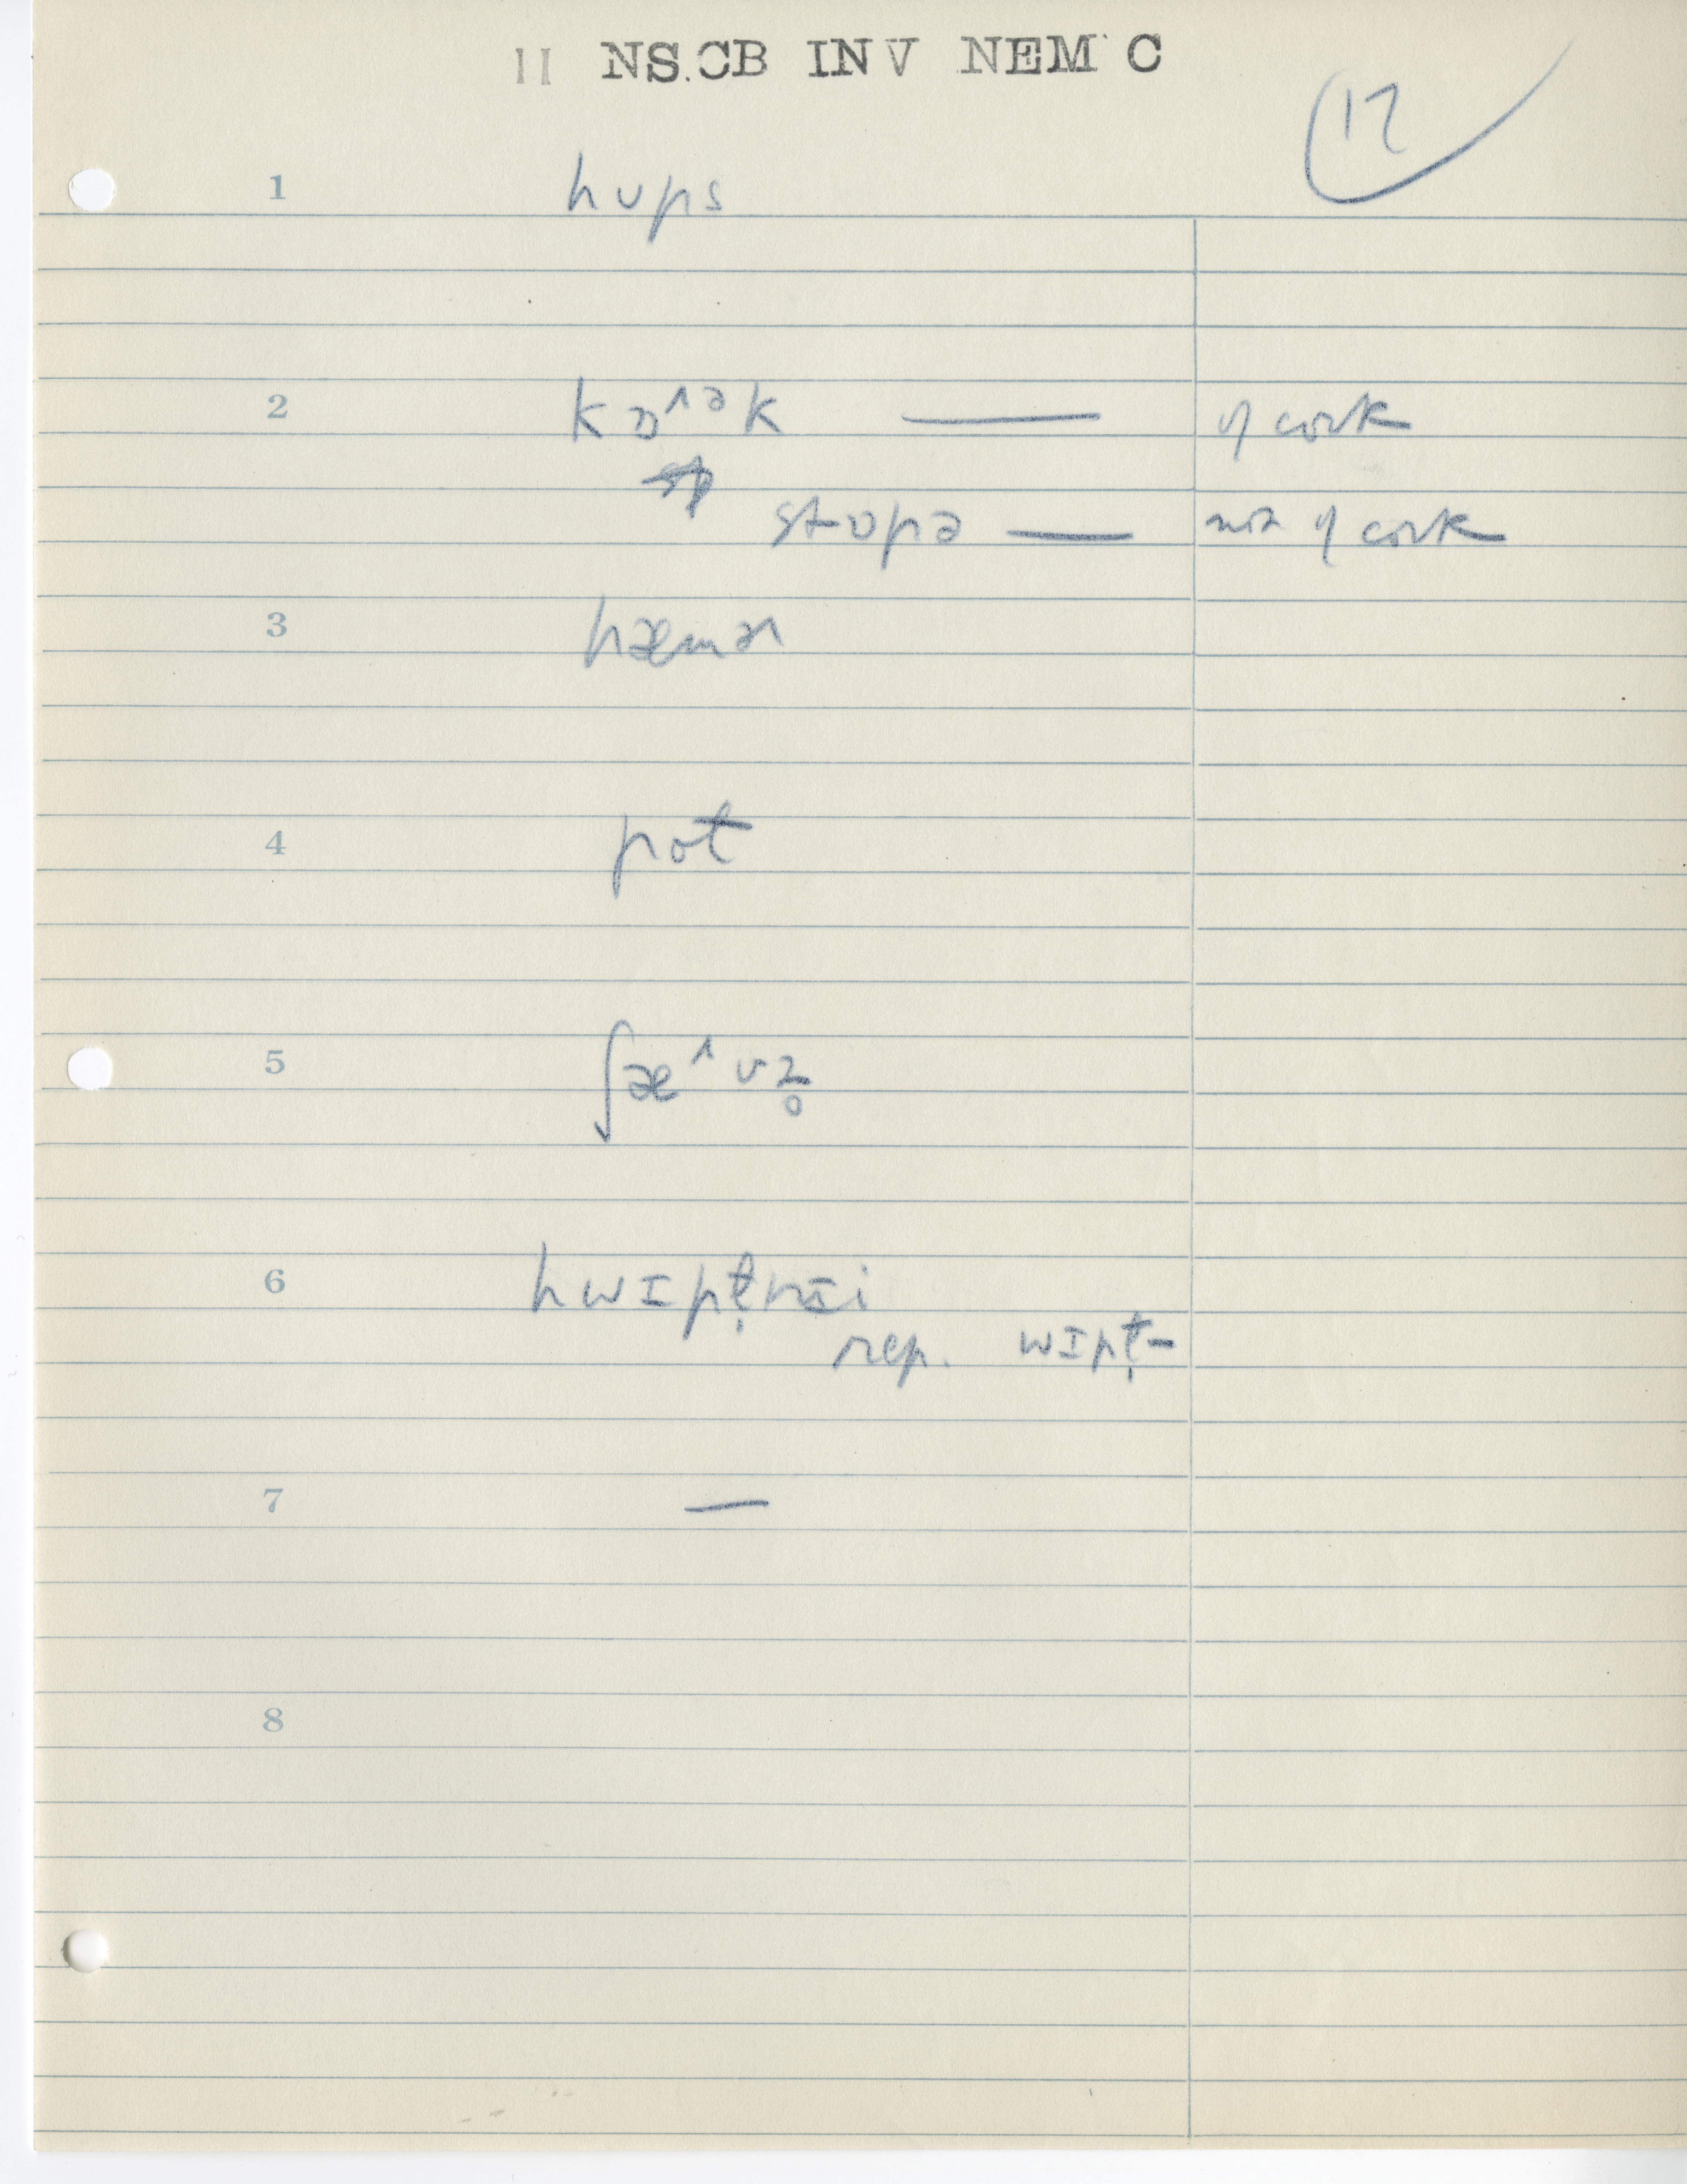 11 NS.CB INV NEM C
17
1 hʊps
2 kɒ^ək — of cork
stɒpə — not of cork
3 hæmə^
4 pot
5 ʃæ^vz̥
6 hwɪpt̩rɪi
rep. wɪpt̩-
7 —
8